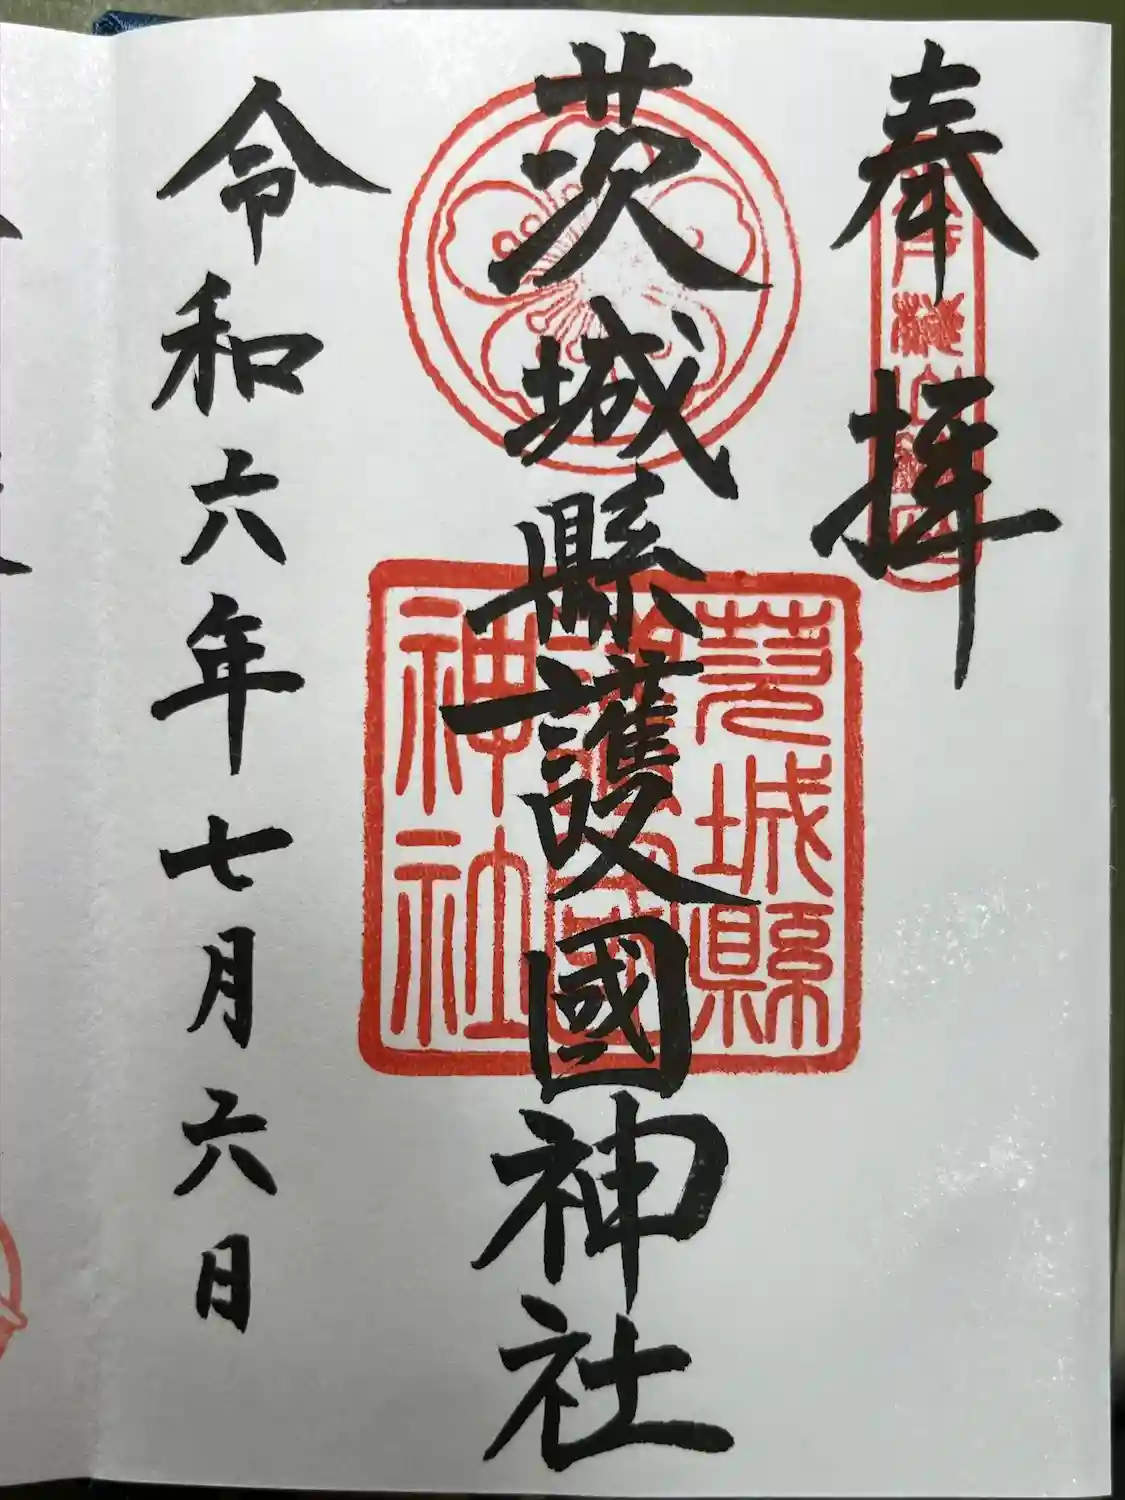 奉拝
茨城縣護國神社
茨城縣
護國
神社
令和六年七月六日